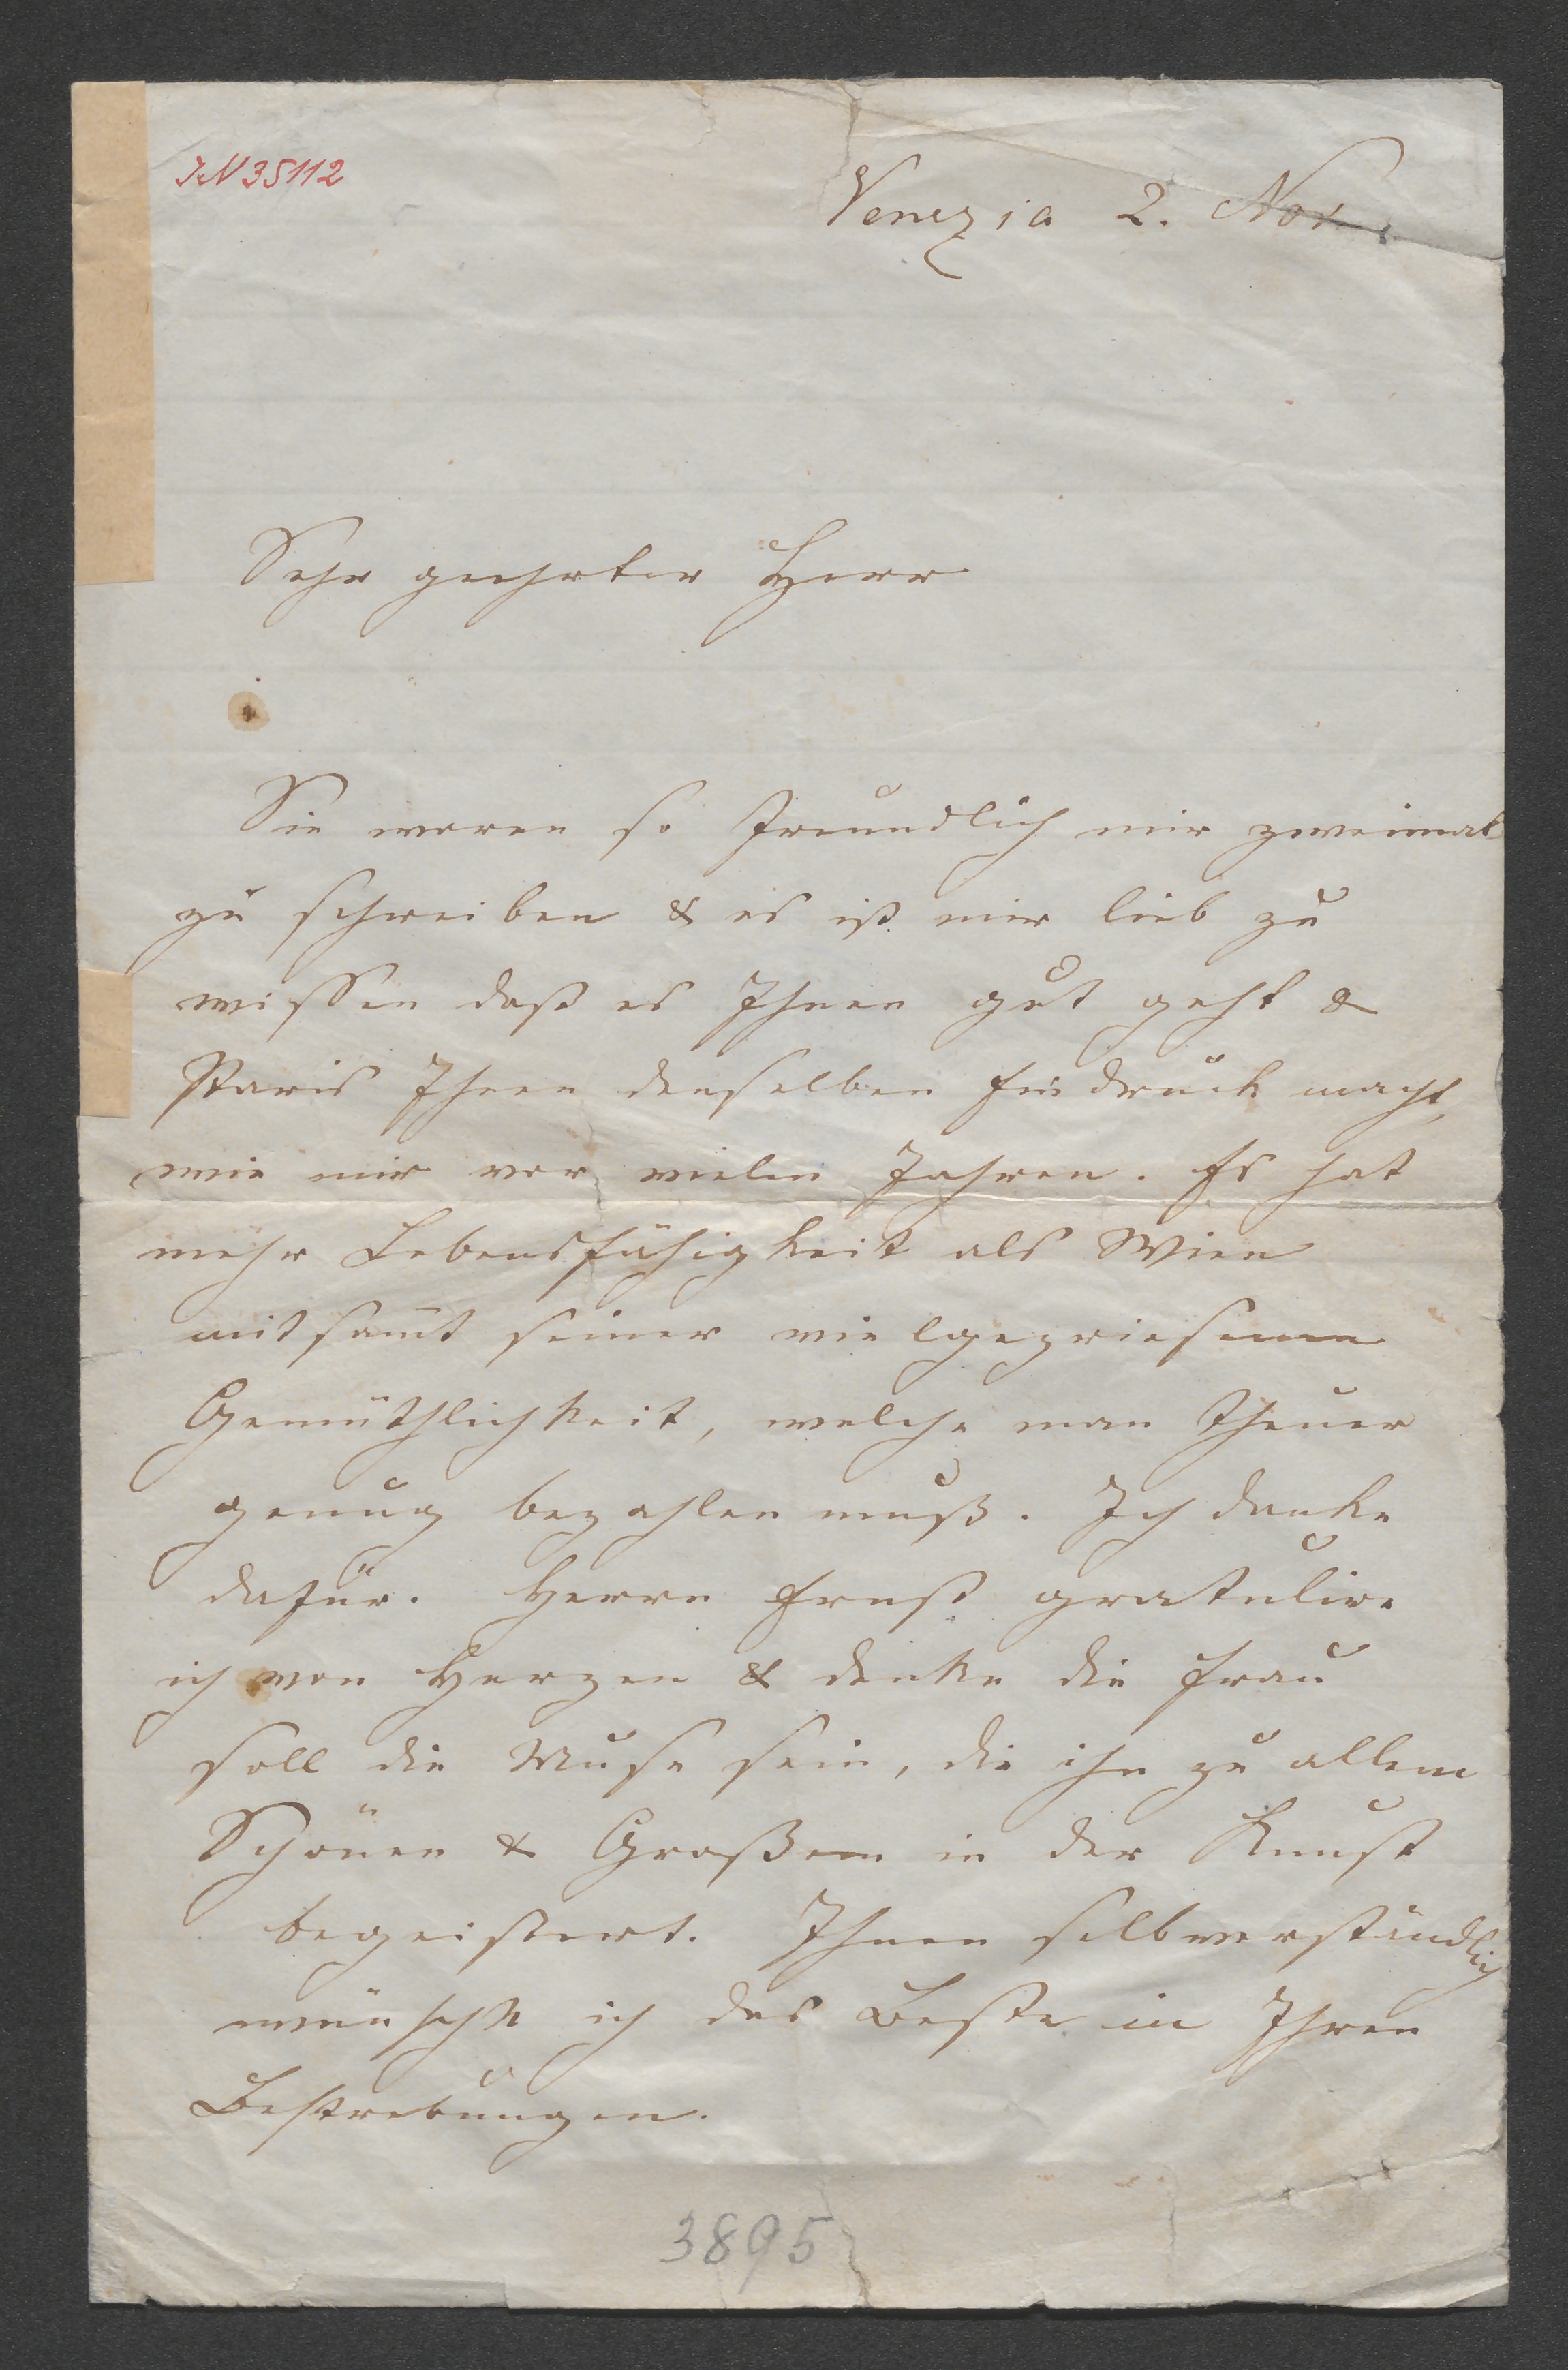 IN 35112
Venezia 2. Nov.
Sehr geehrter Herr
Sie waren so freundlich mir zweimal
zu schreiben & es ist mir lieb zu
wissen daß es Ihnen gut geht &
Paris Ihnen denselben Eindruck macht,
wie mir vor vielen Jahren. Es hat
mehr Lebensfähigkeit als Wien
mitsamt seiner vielgepriesenen
Gemüthlichkeit, welche man theuer
genug bezahlen muß. Ich danke
dafür. Herrn Ernst gratulire
ich von Herzen & denke die Frau
soll die Muse sein, die ihn zu allem
Schönen & Großem in der Kunst
begeistert. Ihnen selbverständlich
wünsche ich das Beste in Ihren
Bestrebungen.
3895